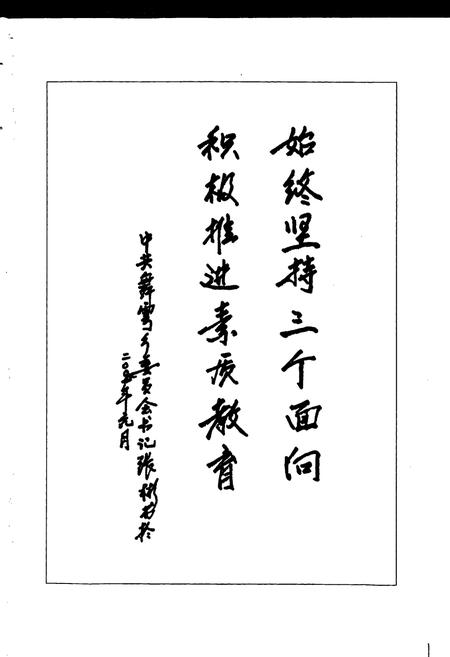 始终坚持三个面向
积极推进素质教育
中共舞雩乡委员会书记张彬书于
二00五年元月